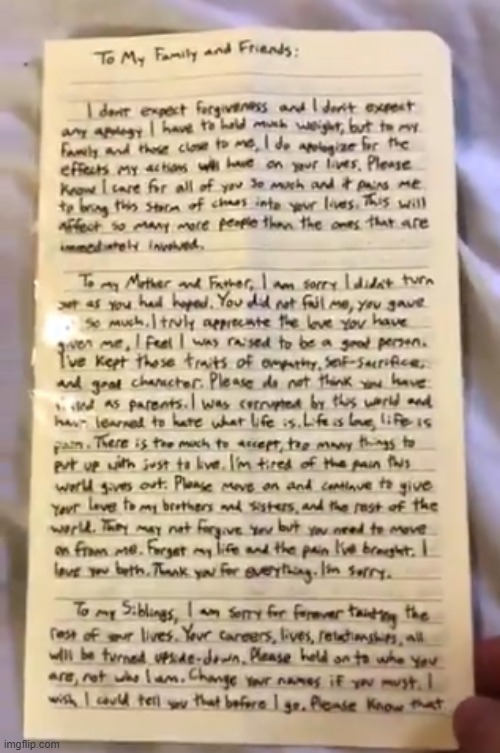 To My Family and Friends:
I don't expect forgiveness and I don't expect
any apology I have to hold much weight, but to my
family and those close to me, I do apologize for the
effects my actions will have on your lives. Please
know I care for all of you so much and it pains me
to bring this storm of chaos into your lives. This will
affect so many more people than the ones that are
immediately involved.
To my Mother and Father, I am sorry I didn't turn
out as you had hoped. You did not fail me, you gave
so much. I truly appreciate the love you have
given me, I feel I was raised to be a good person.
I've kept those traits of empathy, self-sacrifice,
and good character. Please do not think you have
failed as parents. I was corrupted by this world and
have learned to hate what life is. Life is love, life is
pain. There is too much to accept, too many things to
put up with just to live. I'm tired of the pain this
world gives out. Please move on and continue to give
your love to my brothers and sisters, and the rest of the
world. They may not forgive you but you need to move
on from me. Forget my life and the pain I've brought. I
love you both. Thank you for everything. I'm sorry.
To my Siblings, I am sorry for forever tainting the
rest of your lives. Your careers, lives, relationships, all
will be turned upside-down. Please hold on to who you
are, not who I am. Change your names if you must. I
wish I could tell you that before I go. Please know that
imgflip.com